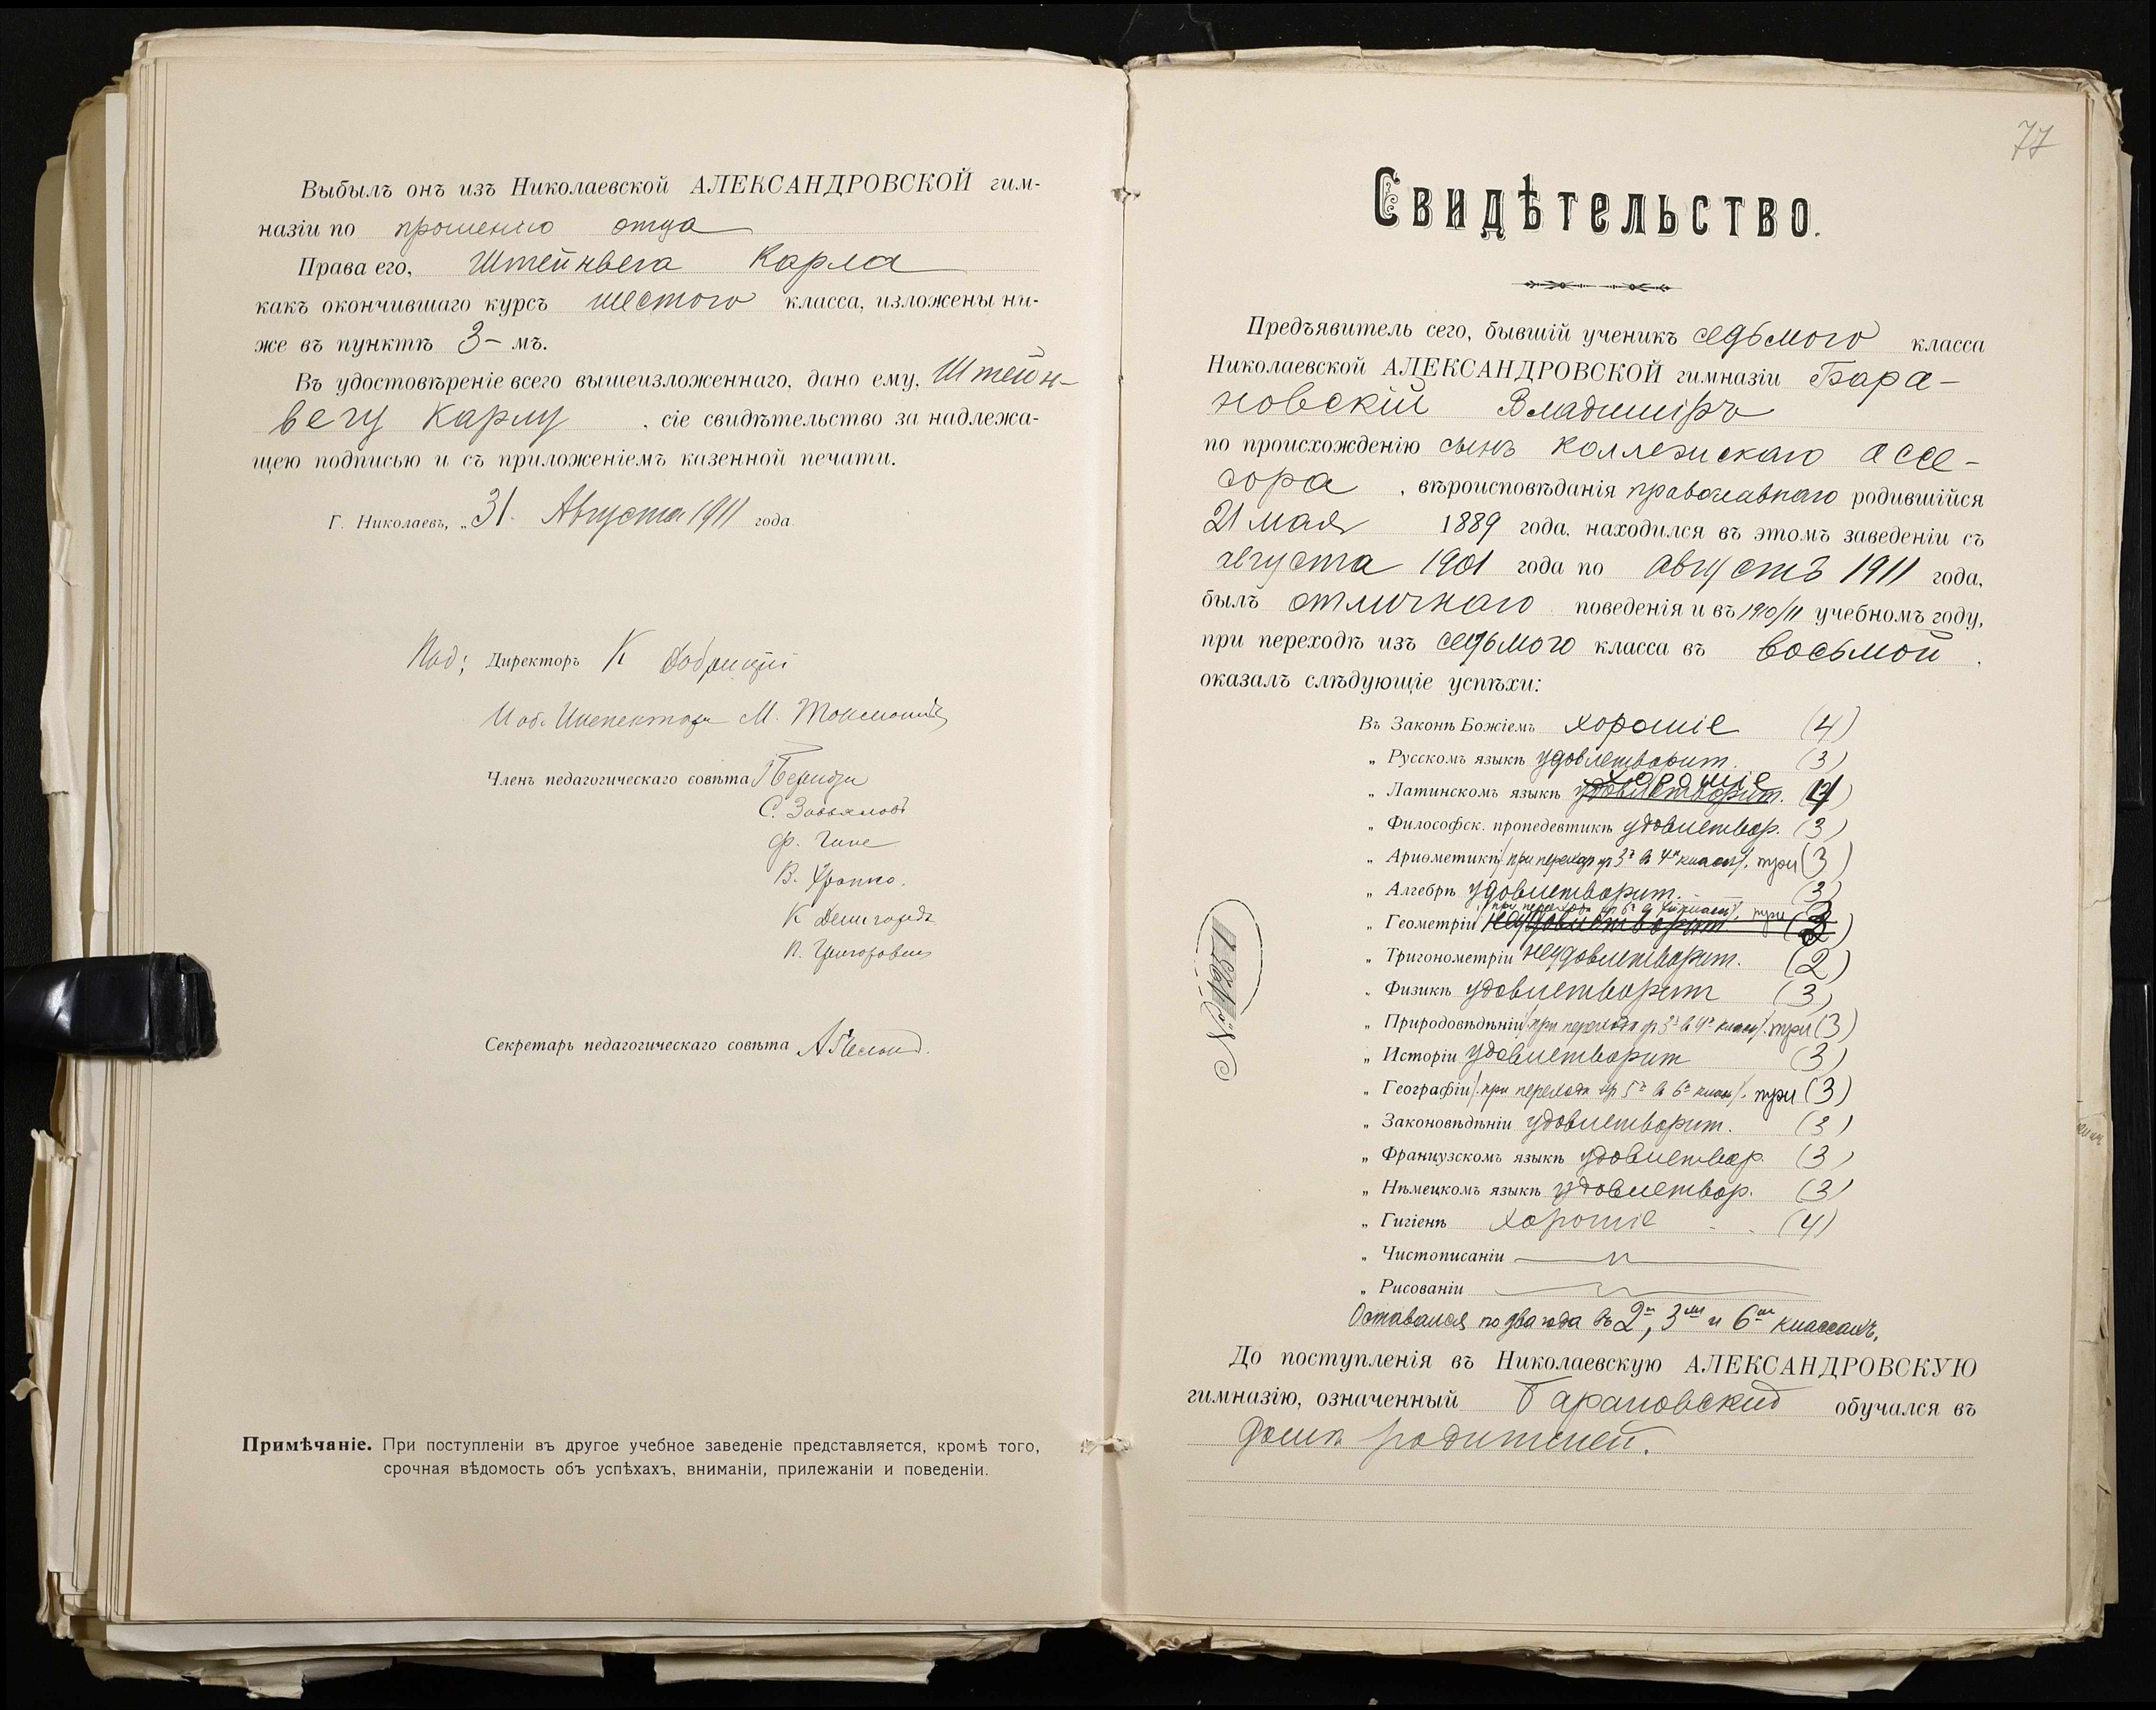 Выбылъ онъ изъ Николаевской АЛЕКСАНДРОВСКОЙ гим-
назіи по прошенію отца
Права его, Штейнвега Карла
какъ окончившаго курсъ шестого класса, изложены ни-
же въ пунктѣ 3-мъ.
Въ удостовѣреніе всего вышеизложеннаго, дано ему, Штейн-
вегу Карлу, сіе свидѣтельство за надлежа-
щею подписью и съ приложеніемъ казенной печати.
Г. Николаевъ, „31. Августа 1911 года.
Под: Директоръ К
И об. Инспектора М.
Членъ педагогическаго совѣта
С. Завьяловъ
Ф.
В.
К
П. Григоровичъ
Секретарь педагогическаго совѣта
Примѣчаніе. При поступленіи въ другое учебное заведеніе представляется, кромѣ того,
срочная вѣдомость объ успѣхахъ, вниманіи, прилежаніи и поведеніи.
77
Свидѣтельство.
Предъявитель сего, бывшій ученикъ седьмого класса
Николаевской АЛЕКСАНДРОВСКОЙ гимназіи Бара-
новскій Владиміръ
по происхожденію сынъ коллежскаго ассе-
сора, вѣроисповѣданія православнаго родившійся
21 мая 1889 года, находился въ этомъ заведеніи съ
августа 1901 года по августъ 1911 года,
былъ отличнаго поведенія и въ 1910/11 учебномъ году,
при переходѣ изъ седьмого класса въ восьмой.
оказалъ слѣдующіе успѣхи:
Въ Законѣ Божіемъ хорошіе (4)
„ Русскомъ языкѣ удовлетворит. (3)
хорошіе
„ Латинскомъ языкѣ удовлетворит. (4)
„ Философск. пропедевтикѣ удовлетвор. (3)
„ Ариѳметикѣ /при переходѣ изъ 3ъ въ 4й классъ/. три (3)
„ Алгебрѣ удовлетворит. (3)
/при переходѣ изъ 6ъ въ классъ/, три
„ Геометріи неудовлетворит. (3)
„ Тригонометріи неудовлетворит. (2)
„ Физикѣ удовлетворит (3)
„ Природовѣдѣніи /при переходѣ изъ 3ъ въ 4й классъ/. три (3)
„ Исторіи удовлетворит (3)
„ Географіи /при переходѣ изъ 5ъ въ 6й классъ/. три (3)
„ Законовѣдѣніи удовлетворит. (3)
„ Французскомъ языкѣ удовлетвор. (3)
„ Нѣмецкомъ языкѣ удовлетвор. (3)
„ Гигіенѣ хорошіе (4)
„ Чистописаніи
„ Рисованіи
Оставался по два года въ 2м, 3мъ и 6мъ классахъ.
До поступленія въ Николаевскую АЛЕКСАНДРОВСКУЮ
гимназію, означенный Барановскій обучался въ
домѣ родителей.
№